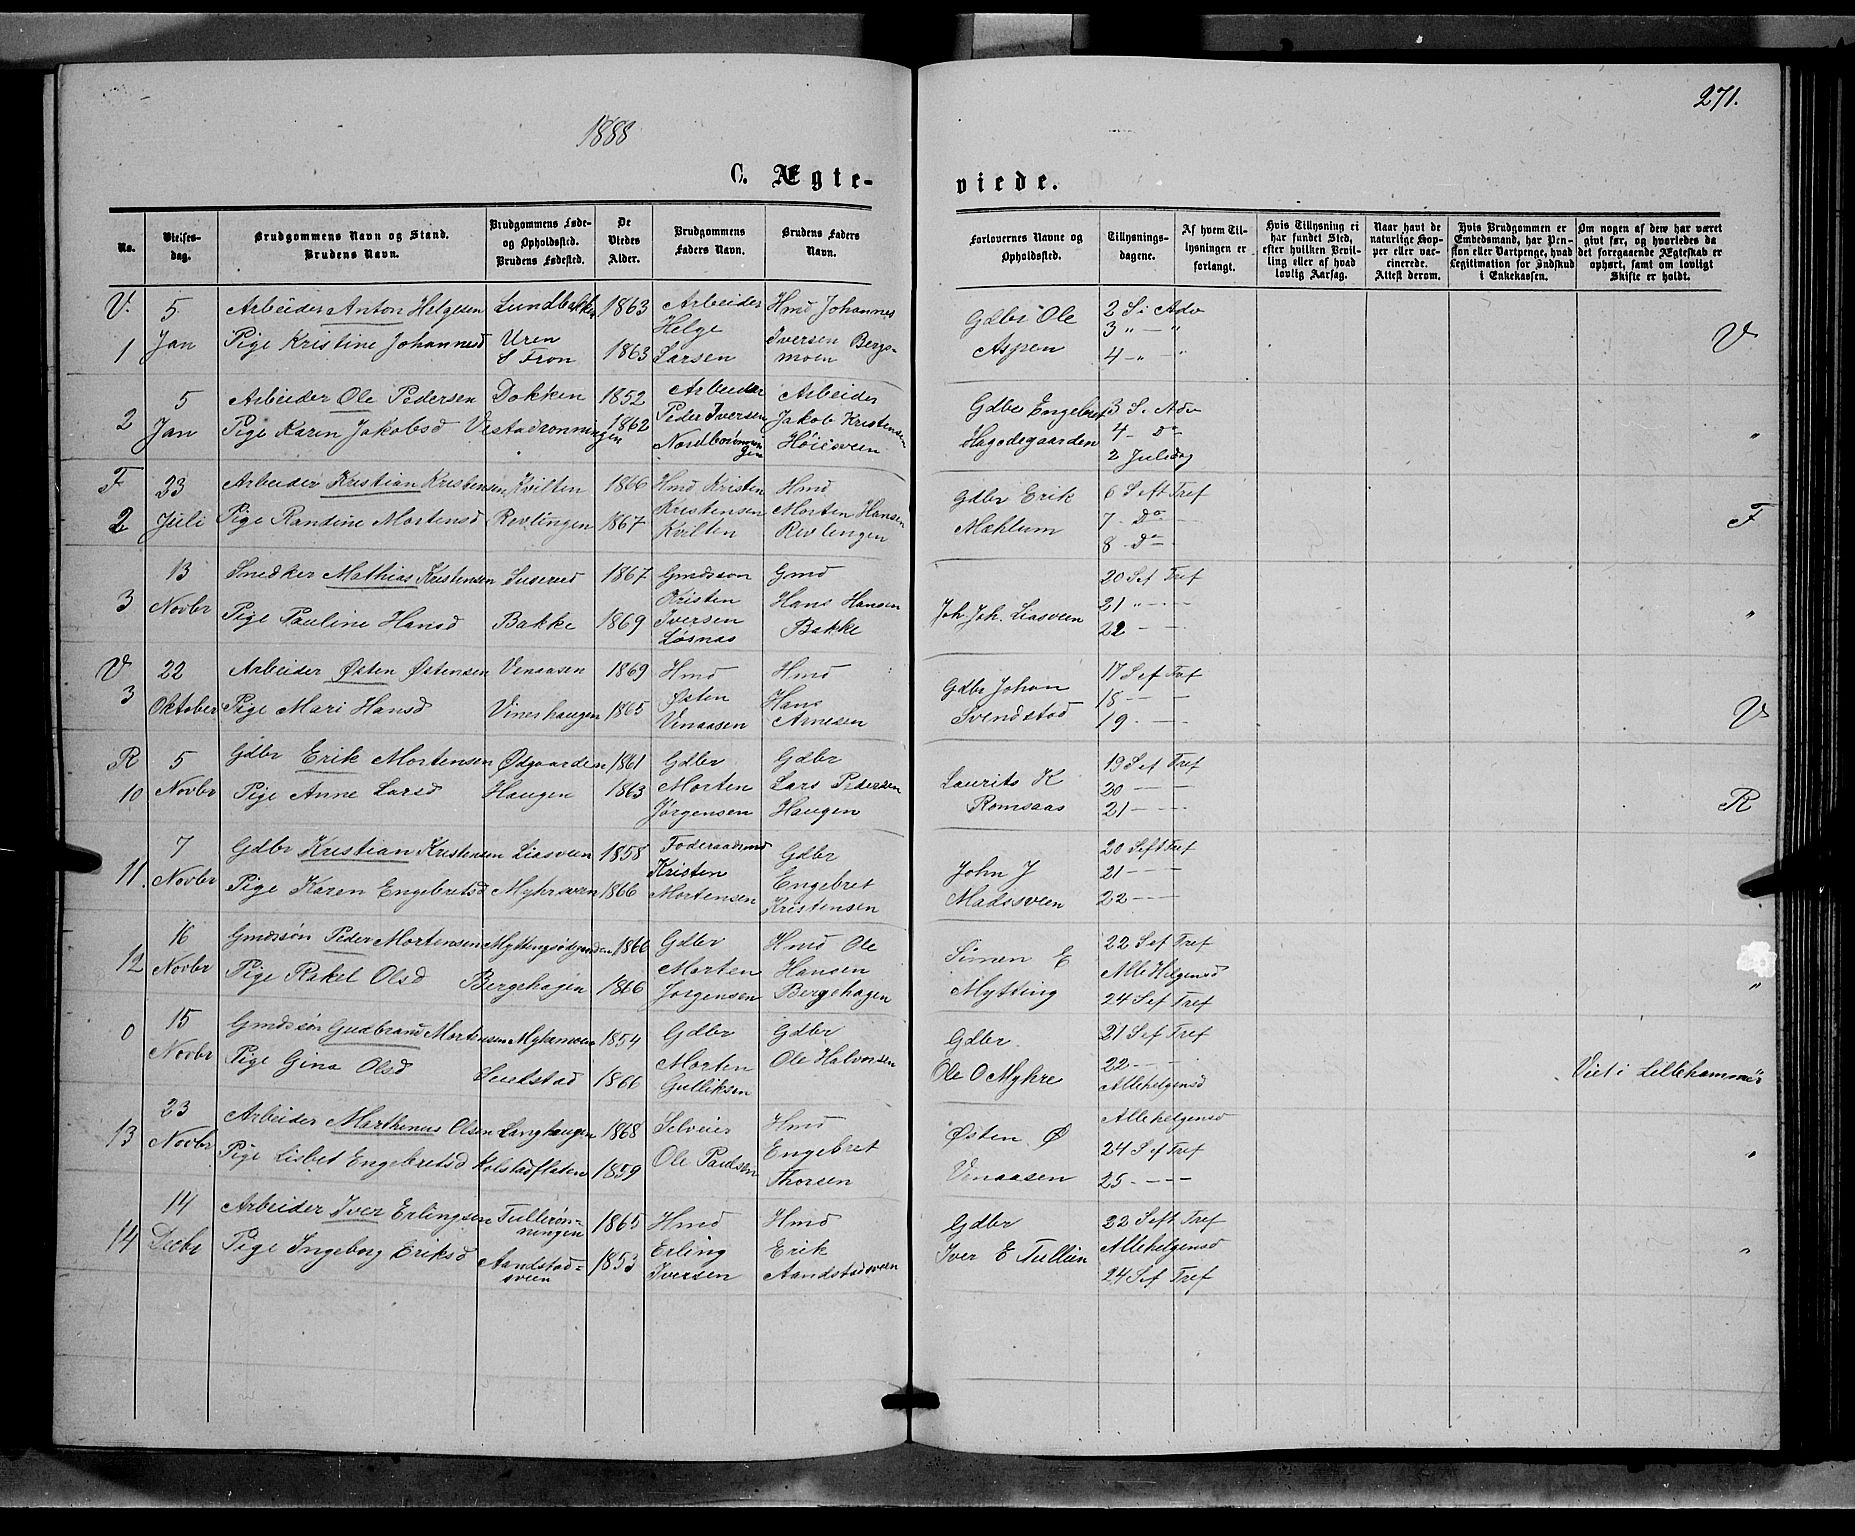 271.
1888
C. Ægte-
viede.
No.
Vielses-
dag.
Brudgommens Navn og Stand.
Brudens Navn.
Brudgommens Føde-
og Opholdssted.
Brudens Fødested.
De
Viedes
Alder.
Brudgommens
Faders Navn.
Brudens Faders
Navn.
Forlovernes Navne og
Opholdssted.
Tillysnings-
dagene.
Af hvem Til-
lysningen er
forlangt.
Hvis Tillysning ei
har fundet Sted,
efter hvilken Bevil-
ling eller af hvad
lovlig Aarsag.
Naar havt de
naturlige Kop-
per eller vac-
cinerede.
Attest derom.
Hvis Brudgommen er
Embedsmand, har Pen-
sion eller Vartpenge, hvad
Legitimation for Indskud
i Enkekassen.
Om nogen af dem har været
givt før, og hvorledes da
det foregaaende Ægteskab er
ophørt, samt om lovligt
Skifte er holdt.
V. 5 Arbeider Anton Helgesen Lundbakken 1863 Arbeider Hmd Johannes
1 Jan Pige Kristine Johannesd Uren S Fron 1863 Helge Larsen Iversen Bergs-
moen
Gdbr Ole Aspen
2 S i Adv
3 " — "
4 - " - "
V
2 5 Jan Arbeider Ole Pedersen Dokken 1852 Arbeider Peder Iversen Arbeider
Pige Karin Jakobsd Vestadrønningen 1862 Jakob Kristensen Høiesveen
Gdbr Engebret Hagedegaarden
3 S. Adv
4 - Do
2 Juledag
"
F 23 Arbeider Kristian Kristensen Kvilten 1866 Hmd Kristen Kristensen Kvilten Hmd
2 Juli Pige Randine Mortensd Revlingen 1867 Morten Hansen Revlingen
Gdbr Erik Mæhlum
6 S eft Tref
7 - Do —
8 - Do —
F
3 13 Novbr Snedker Mathias Kristensen 1867 Gmdssøn Kristen Iversen Løsnas Gmd
Pige Pauline Hansd Bakke 1869 Hans Hansen Bakke
Joh. Joh. Liasveen
20 S ef Tref
21 " - - -
22 - - -
"
V 22 Arbeider Østen Østensen Venaasen 1869 Hmd Østen Venaasen Hmd
3 Oktober Pige Mari Hansd Vinerhaugen 1865 Hans Arnesen
Gdbr Johan Svendstad
17 S ef Tref
18 - —
19 - —
V
R 5 Gdbr Erik Mortensen Ødgaarden 1861 Gdbr Morten Jørgensen Gdbr
10 Novbr Pige Anne Larsd Haugen 1863 Lars Pedersen Haugen
Laurits K Romsaas
19 S ef Tref
20 - - —
21 - - —
R
11. 7 Novbr Gdbr Kristian Kristensen Liasveen 1858 Foderaadsmd Kristen Mortensen Gdbr
Pige Karen Engebretsd Myhrsveen 1866 Engebret Kristensen
John J Madssveen
20 S eft Tref
21 - - —
22 - - —
12 16 Novbr Gmdssøn Peder Mortensen 1866 Gdbr Morten Jørgensen Hmd Ole
Pige Rakel Olsd Bergehagen 1866 Hansen Bergehagen
Simen E Mytting
22 S ef Tref
Alle Helgensd
24 S ef Tref
"
0 15 Novbr Gmdssøn Gudbrand Mortensen Myhrmoen 1854 Gdbr Morten Gulliksen Gdbr
Pige Gina Olsd 1866 Ole Halvorsen
Gdbr. Ole O Myhre
21 S ef Tref
22 - - -
Allehelgensd
Viet i Lillehammer
13 23 Novbr Arbeider Marthinus Olsen Langhaugen 1868 Selveier Hmd
Pige Lisbet Engebretsd Kolstadflaten 1859 Ole Paulsen Engebret Thorsen
Østen Ø Venaasen
Allehelgensd
24 S ef Tref
25 - - - -
"
14 14 Decbr Arbeider Iver Erlingsen Tullerøn-
ningen 1865 Hmd Erling Iversen Hmd
Pige Ingeborg Eriksd Aandstad-
sveen 1853 Erik Aandstadsveen
Gdbr Iver E Tullien
22 S eft Tref
Allehelgensd
24 S ef Tref
"